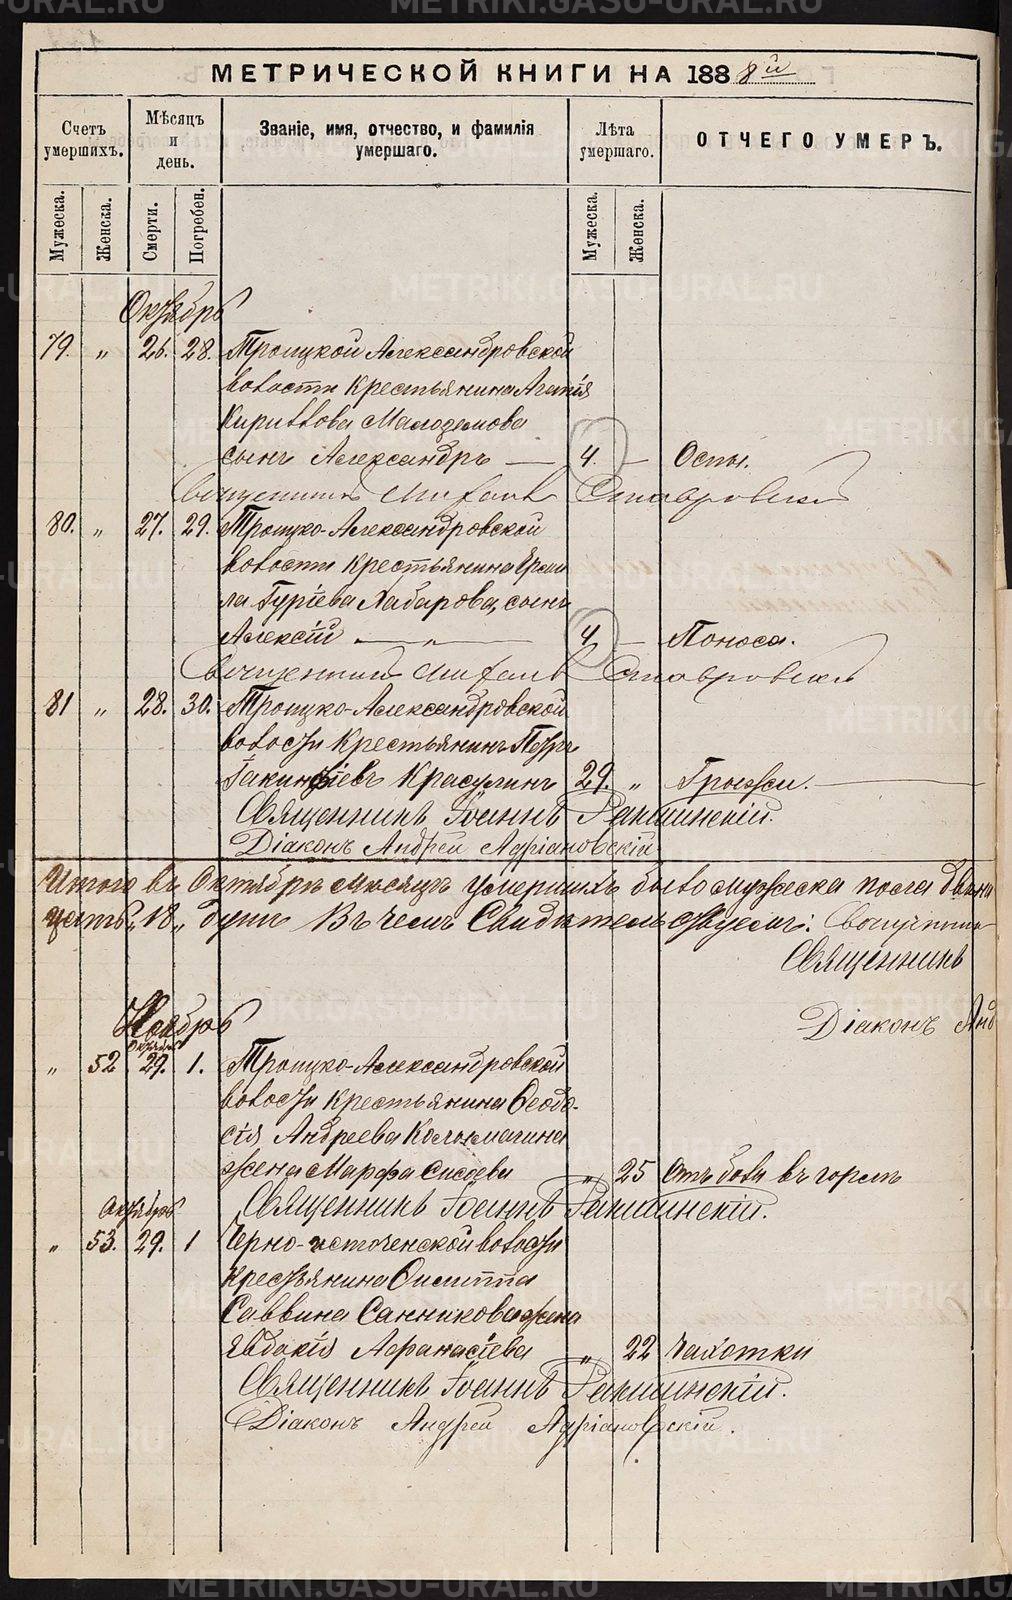 МЕТРИЧЕСКОЙ КНИГИ НА 1888й
Счетъ умершихъ.
Мѣсяцъ и день.
Званіе, имя, отчество, и фамилія умершаго.
Лѣта умершаго.
ОТЧЕГО УМЕРЪ.
Мужеска.
Женска.
Смерти.
Погребен.
Мужеска.
Женска.
Октябрь
79. „ 26. 28. Троицкой Александровской
волости крестьянина Агапія
Кириллова Малоземова
сынъ Александръ — 4. — Оспы.
Священникъ Михаилъ Ставровскій
80. „ 27. 29. Троицко-Александровской
волости крестьянина Ерми
ла Гуріева Хабарова, сынъ
Алексій — „ — 4. — Поноса.
Священникъ Михаилъ Ставровскій
81 „ 28. 30. Троицко-Александровской
волости крестьянинъ Петръ
Іакинѳіевъ Красулинъ 29. „ Грыжи. —
Священникъ Іоаннъ Ракшинскій.
Діаконъ Андрей Адріановскій
Итого въ Октябрѣ мѣсяцѣ умершихъ было мужеска пола
цать „18„ душъ Въ чемъ Свидѣтельствуемъ: Священник
Священникъ
Діаконъ Анд
Ноябрь
Октября
„ 52 29. 1. Троицко-Александровской
волости крестьянина Ѳеодо-
сія Андреева Колокмагина
жена Марфа Сисоева „ 25 Отъ боли въ горлѣ
Священникъ Іоаннъ Ракшинскій.
Октября
„ 53. 29. 1 Черно-источенской волости
крестьянина Филиппа
Саввина Санникова жена
Евдокія Афанасіева „ 22 Чахотки
Священникъ Іоаннъ Ракшинскій.
Діаконъ Андрей Адріановскій.
METRIKI.GASU-URAL.RU